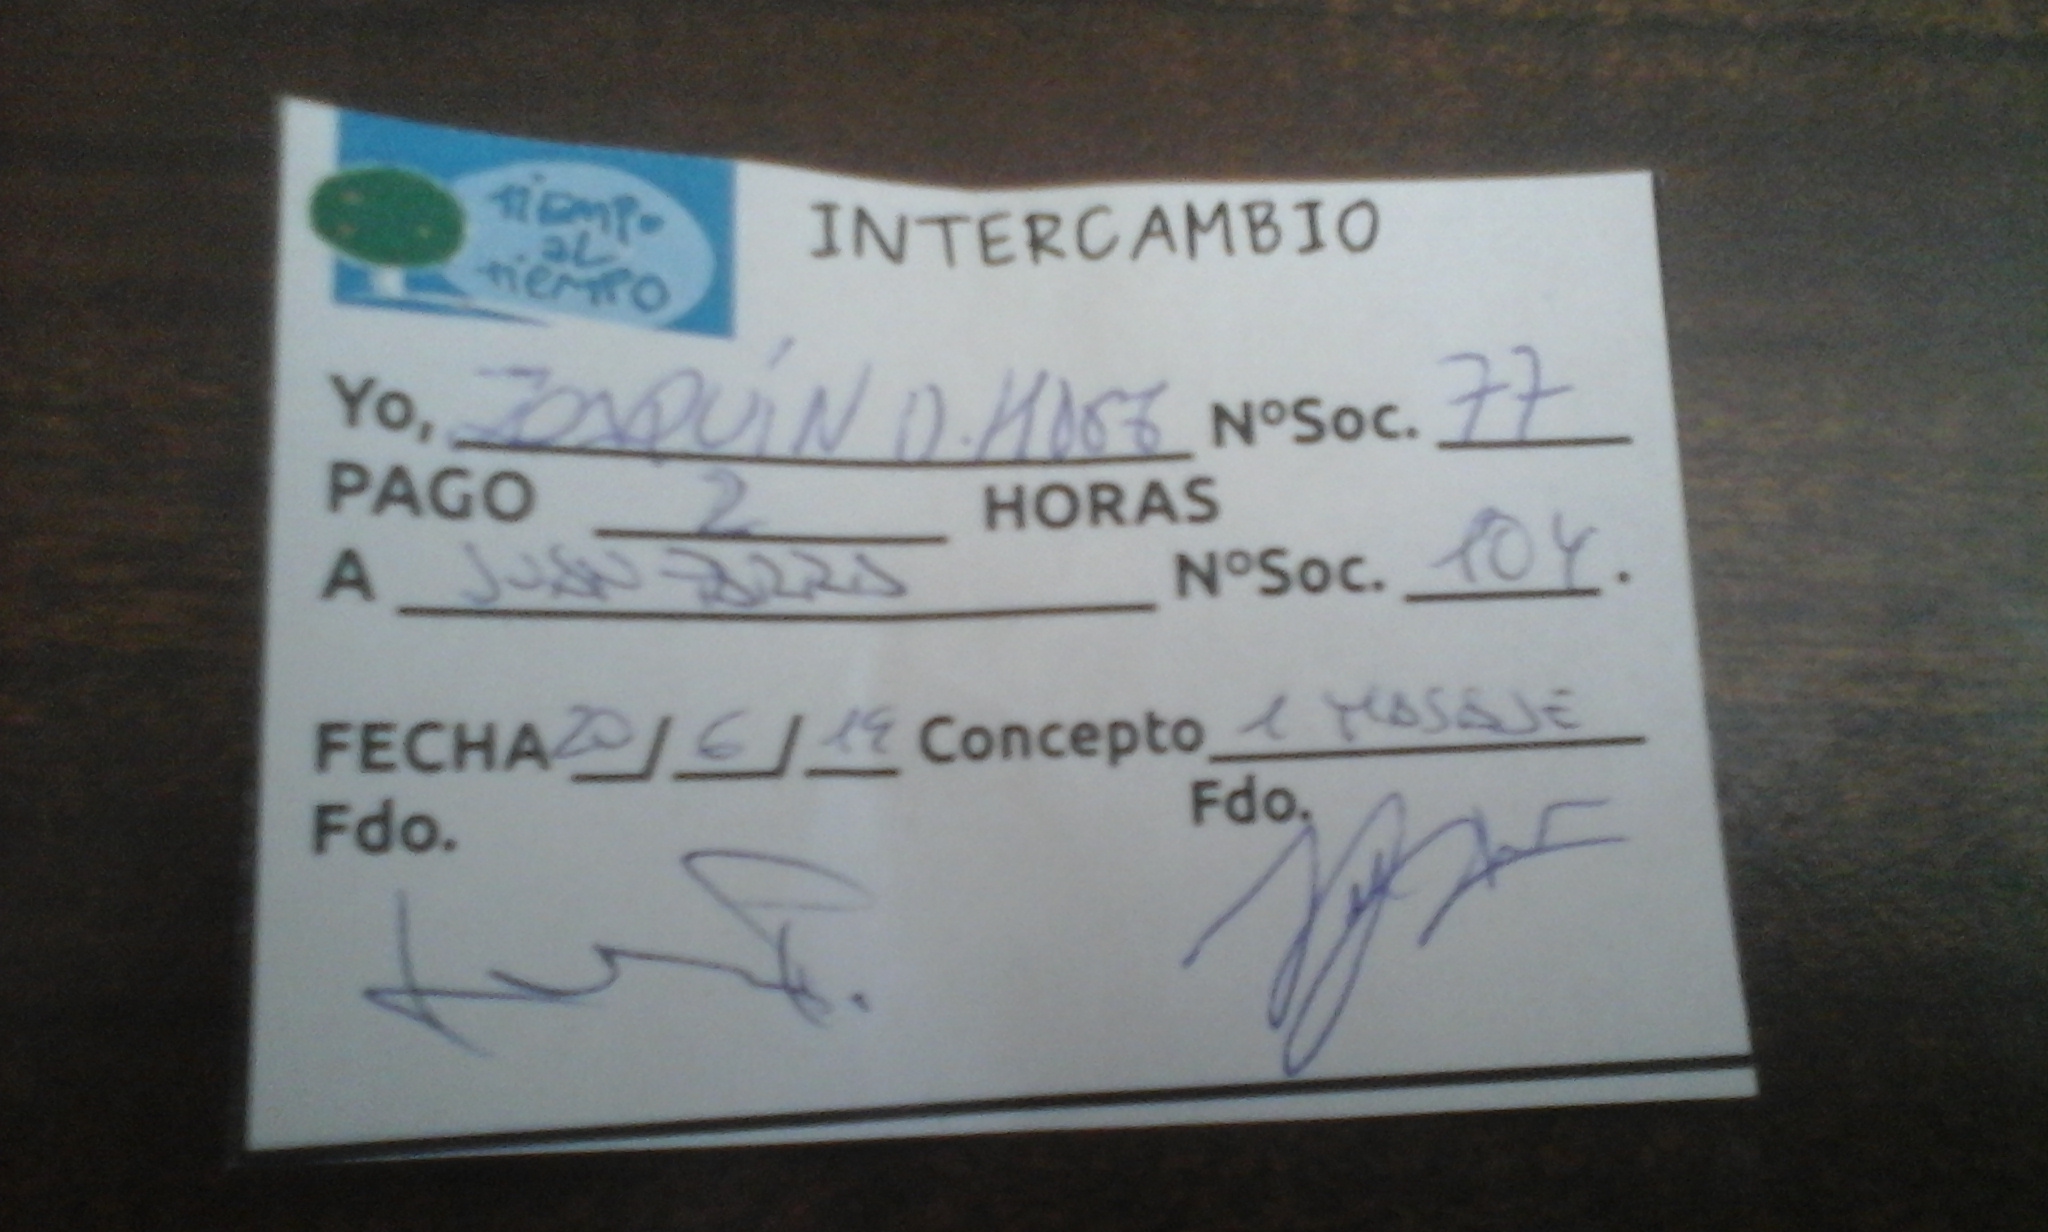 TIEMPO
AL
TIEMPO
INTERCAMBIO
Yo, JOAQUÍN D. NºSoc. 77
PAGO 2 HORAS
A JUAN NºSoc. 104.
FECHA 20/6/19 Concepto 1 MASAJE
Fdo. Fdo.